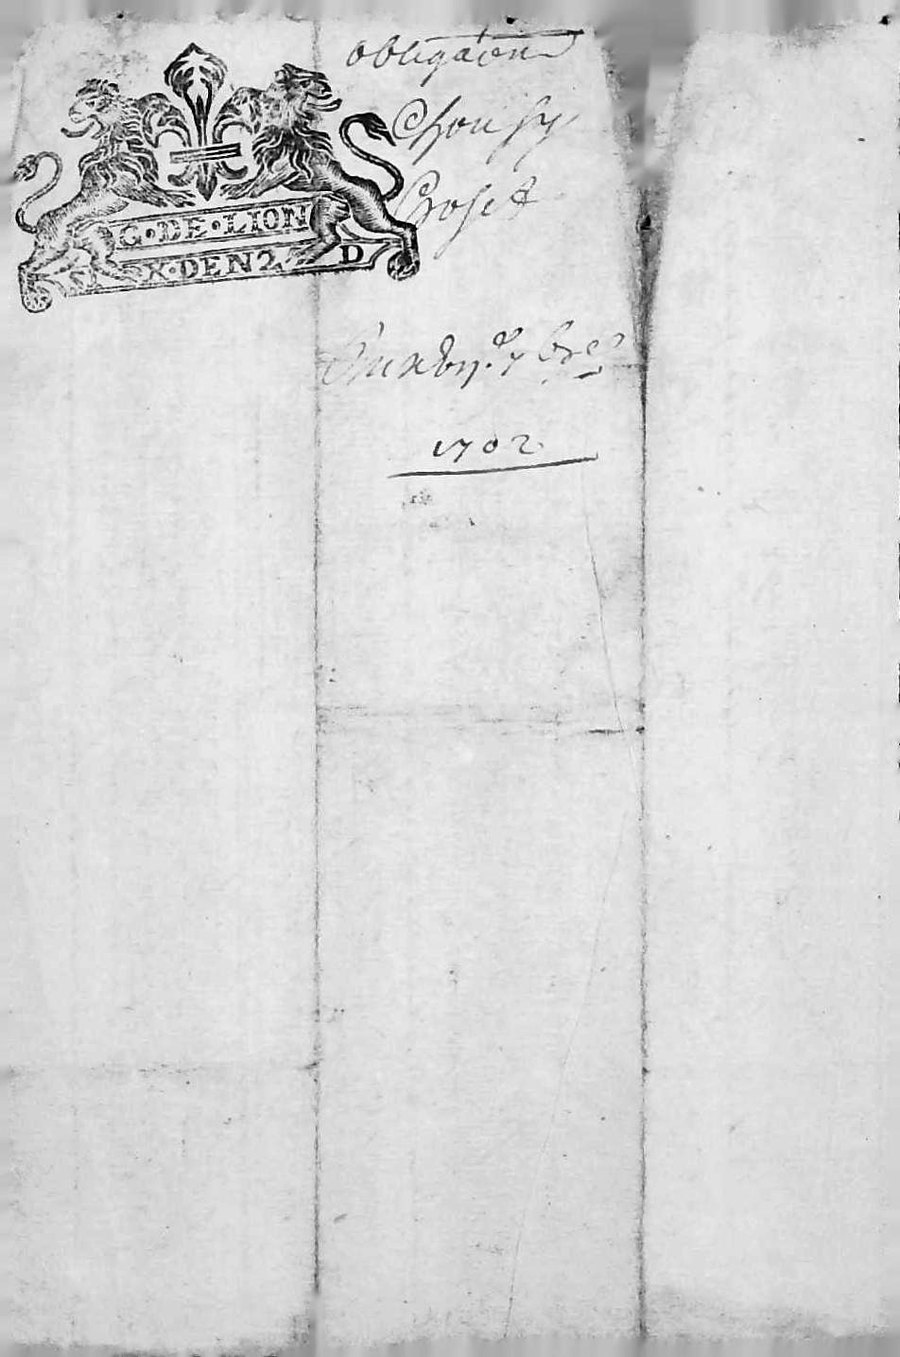 G·DE·LION
X·DEN 2 D
obligaõn
Chousy
Croset
7bre
1702